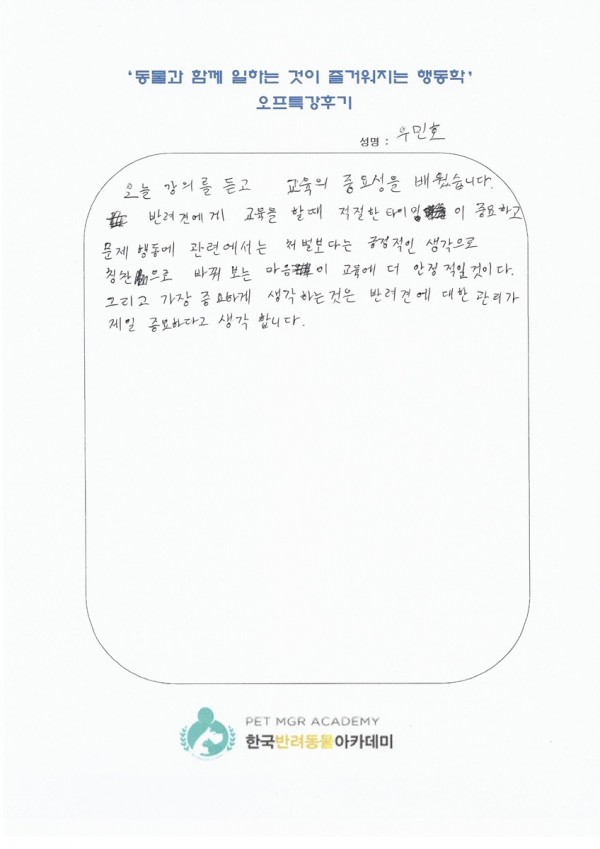 '동물과 함께 일하는 것이 즐거워지는 행동학'
오프특강후기
성명 : 우민호
오늘 강의를 듣고 교육의 중요성을 배웠습니다.
반려견에게 교육을 할때 적절한 타이밍이 중요하고
문제 행동에 관련에서는 처벌보다는 긍정적인 생각으로
칭찬으로 바꿔 보는 마음이 교육에 더 안정적일것이다.
그리고 가장 중요하게 생각하는것은 반려견에 대한 관리가
제일 중요하다고 생각합니다.
PET MGR ACADEMY
한국반려동물아카데미